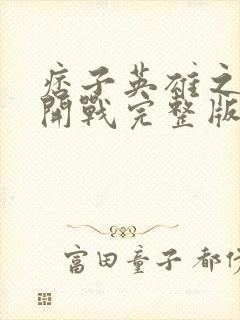 痞子英雄之
開戰完整版
富田童子 都